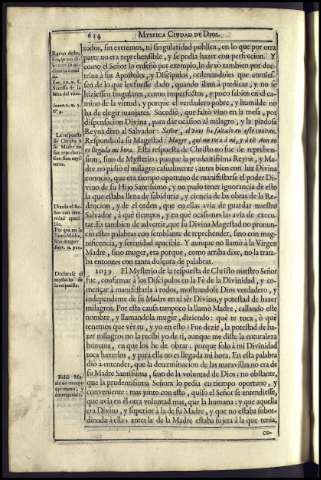 614 MYSTICA CIUDAD DE DIOS.
todos, sin extremos, ni singularidad publica, en lo que por otra
parte no era reprehensible, y se podia hazer con perfeccion. Y
como el Señor lo enseñò por exemplo, lo dexò tambien por doc-
trina à sus Apostoles, y Discipulos, ordenandoles que comies-
sen de lo que les fuesse dado, quando iban à predicar, y no se
hiziessen singulares, como imperfectos, y poco sabios en el ca-
mino de la virtud, y porque el verdadero pobre, y humilde no
ha de elegir manjares. Sucediò, que faltò vino en la mesa, por
dispensacion Divina, para dar ocasion al milagro, y la piadosa
Reyna dixo al Salvador: Señor, el vino ha faltado en este combite.
Respondiòla su Magestad: Muger, què me toca à mi, y à ti? Aun no
es llegada mi hora. Esta respuesta de Christo no fue de reprehen-
sion, sino de Mysterio; porque la prudentissima Reyna, y Ma-
dre no pidiò el milagro casualmente; antes bien con luz Divina
conociò, que era tiempo oportuno de manifestarse el poder Di-
vino de su Hijo Santissimo, y no pudo tener ignorancia de esto
la que estaba llena de sabiduria, y ciencia de las obras de la Re-
dencion, y de el orden, que en ellas avia de guardar nuestro
Salvador, à què tiempos, y en què ocasiones las avia de execu-
tar. Es tambien de advertir, que su Divina Magestad no pronun-
ciò estas palabras con semblante de reprehender, sino con mag-
nificencia, y serenidad apacible. Y aunque no llamò à la Virgen
Madre, sino muger, era porque, como arriba dixe, no la trata-
ba entonces con tanta dulçura de palabras.
1039 El Mysterio de la respuesta de Christo nuestro Señor
fue, confirmar à los Discipulos en la Fè de la Divinidad, y co-
mençar à manifestarla à todos, mostrandose Dios verdadero, y
independente de su Madre en el sèr Divino, y potestad de hazer
milagros. Por esta causa tampoco la llamò Madre, callando este
nombre, y llamandola muger, diziendo: què te toca, ò què
tenemos que vèr tu, y yo en esto? Fue dezir, la potestad de ha-
zer milagros no la recibi yo de ti, aunque me diste la naturaleza
humana, en que los he de obrar; porque solo à mi Divinidad
toca hazerlos, y para ella no es llegada mi hora. En esta palabra
diò à entender, que la determinacion de las maravillas no era de
su Madre Santissima, sino de la voluntad de Dios; no obstante,
que la prudentissima Señora lo pedia en tiempo oportuno, y
conveniente: mas junto con esto, quiso el Señor se entendiesse,
que avia en èl otra voluntad mas, que la humana; y que aquella
era Divina, y superior à la de su Madre, y que no estaba subor-
dinada à ella; antes la de la Madre estaba sujeta à la que tenia,
co-
La respuesta
de Christo
à su Madre
no fue repre-
hension, sino
mysterio.
Declarase el
mysterio de
la respuesta.